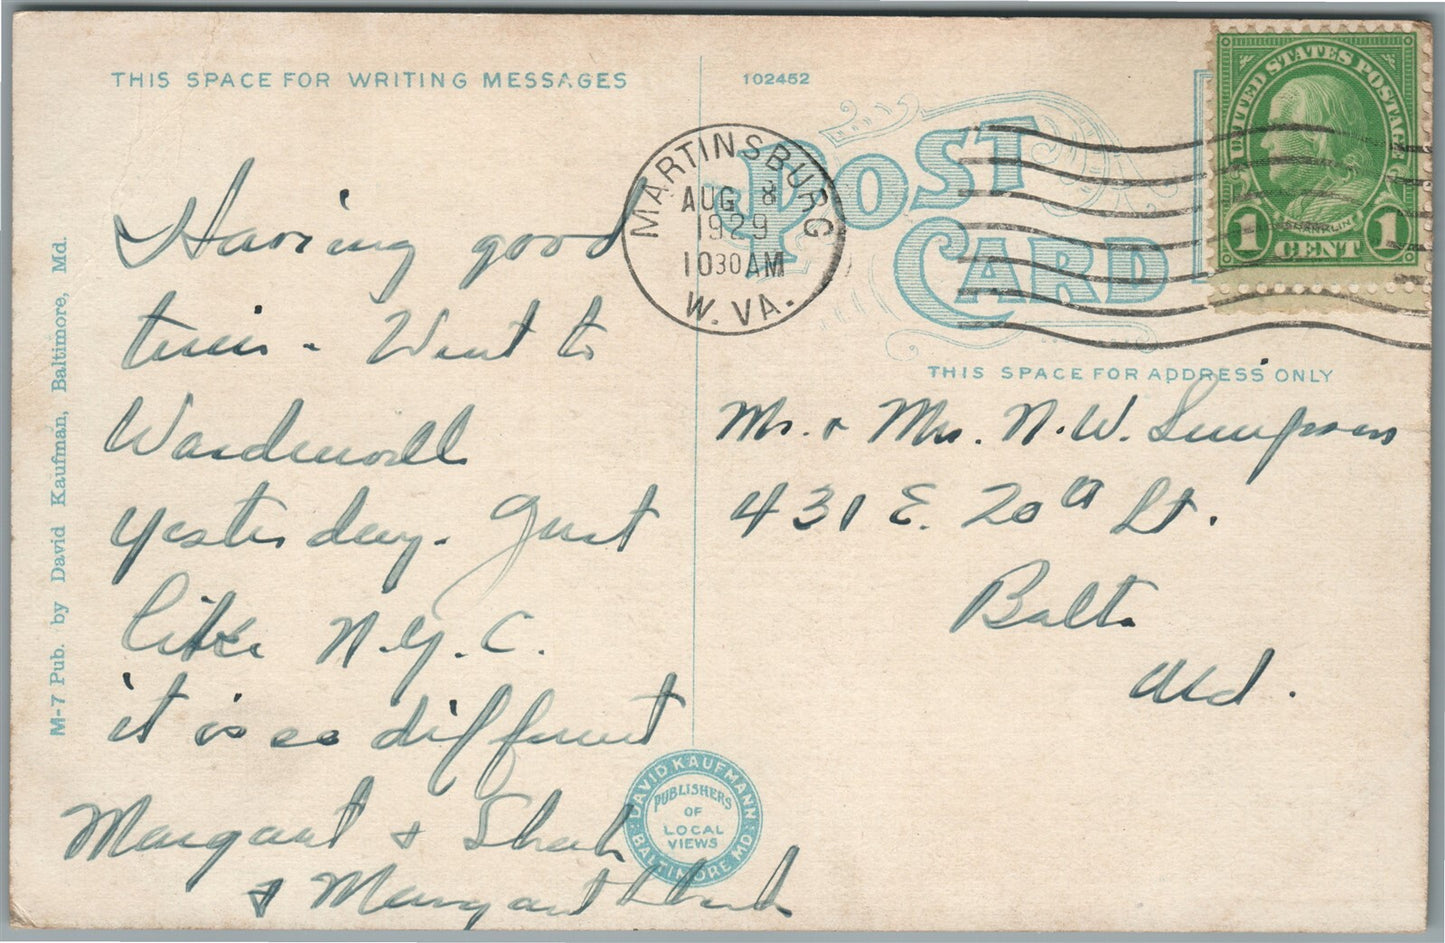 THIS SPACE FOR WRITING MESSAGES
102452
POST
CARD
UNITED STATES POSTAGE
FRANKLIN
1 CENT 1
MARTINSBURG
AUG 8
1929
10 30 AM
W. VA.
THIS SPACE FOR ADDRESS ONLY
M-7 Pub. by David Kaufman, Baltimore, Md.
Having good
time - Went to
yesterday. Just
like N.Y.C.
it is so different
Margaret &
& Margaret
Mr. & Mrs. N. W. Simpson
431 E. 20th St.
Balto
Md.
DAVID KAUFMANN
PUBLISHERS
OF
LOCAL
VIEWS
BALTIMORE MD